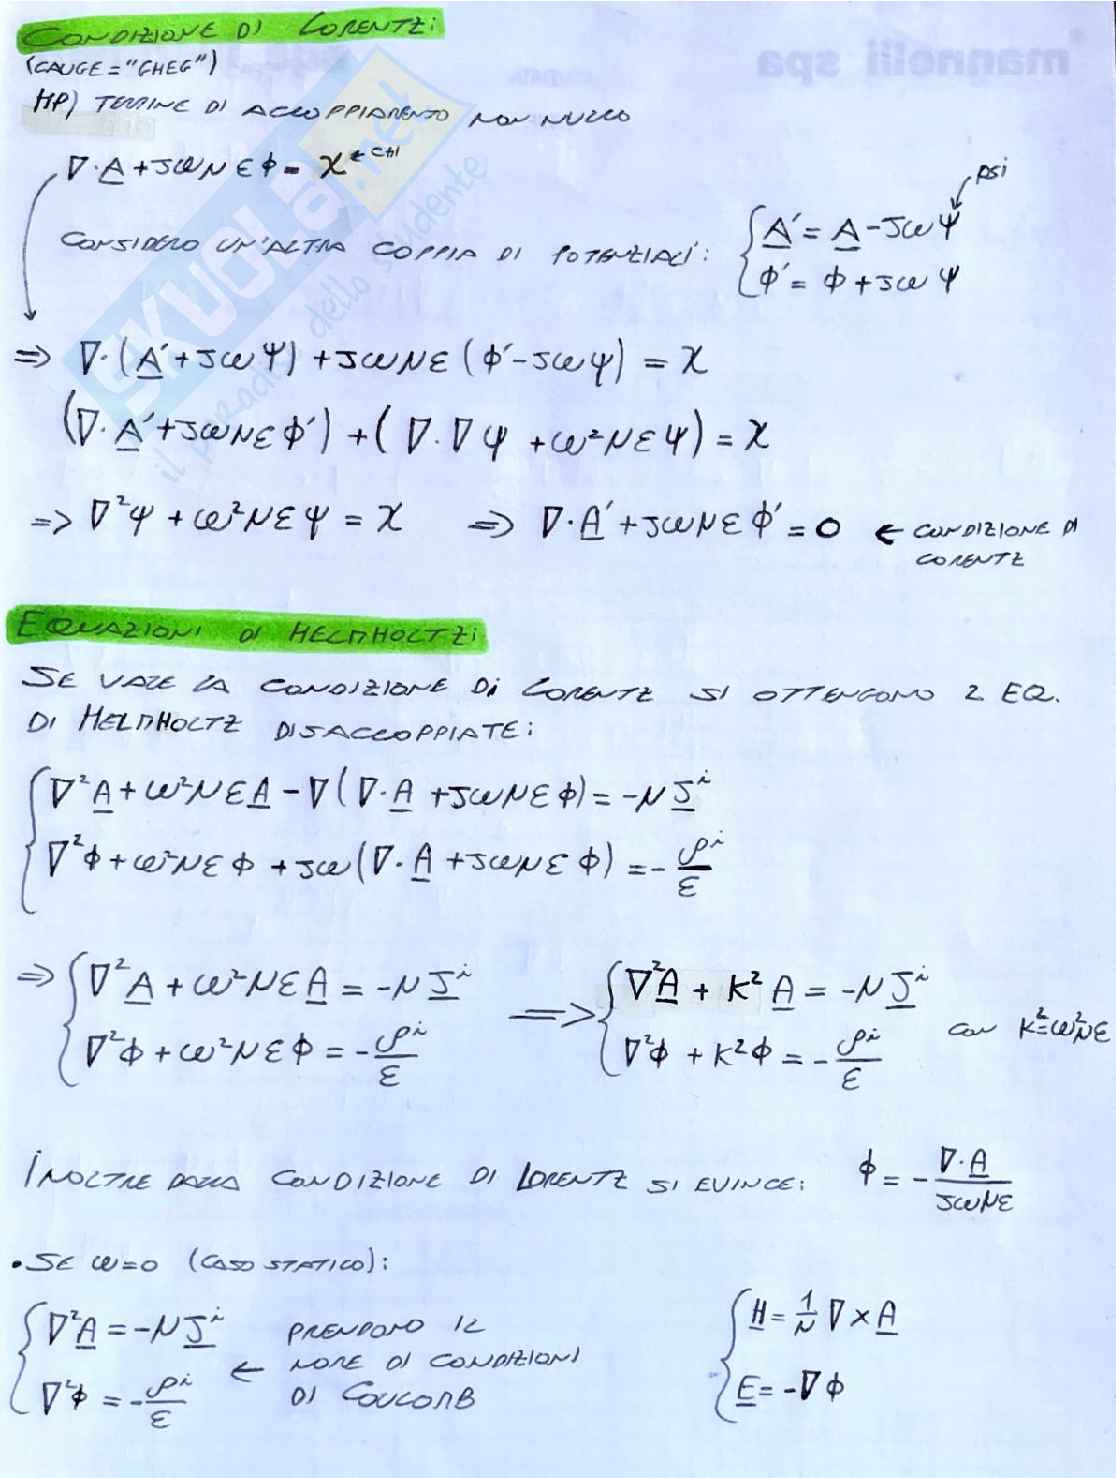 CONDIZIONE DI LORENTZ:
(GAUGE = "GHEG")
HP) TERMINE DI ACCOPPIAMENTO NON NULLO
∇·A + jωμεϕ = χ ← cost
← psi
CONSIDERO UN'ALTRA COPPIA DI POTENZIALI: { A' = A - jωΨ
ϕ' = ϕ + jωΨ
⇒ ∇·(A' + jωΨ) + jωμε(ϕ' - jωψ) = χ
(∇·A' + jωμεϕ') + (∇·∇ψ + ω²μεψ) = χ
⇒ ∇²ψ + ω²μεψ = χ ⇒ ∇·A' + jωμεϕ' = 0 ← CONDIZIONE DI
LORENTZ
EQUAZIONI DI HELMHOLTZ:
SE VALE LA CONDIZIONE DI LORENTZ SI OTTENGONO 2 EQ.
DI HELMHOLTZ DISACCOPPIATE:
{ ∇²A + ω²μεA - ∇(∇·A + jωμεϕ) = -μJⁱ
∇²ϕ + ω²μεϕ + jω(∇·A + jωμεϕ) = -ρⁱ/ε
⇒ { ∇²A + ω²μεA = -μJⁱ ⇒ { ∇²A + K²A = -μJⁱ
∇²ϕ + ω²μεϕ = -ρⁱ/ε ∇²ϕ + K²ϕ = -ρⁱ/ε con K²=ω²με
INOLTRE DALLA CONDIZIONE DI LORENTZ SI EVINCE: ϕ = -∇·A/jωμε
• SE ω=0 (CASO STATICO):
{ ∇²A = -μJⁱ ← PRENDONO IL { H = 1/μ ∇×A
NOME DI CONDIZIONI
∇²ϕ = -ρⁱ/ε DI COULOMB E = -∇ϕ
SKUOLA.net
il paradiso dello studente
mannelli spa